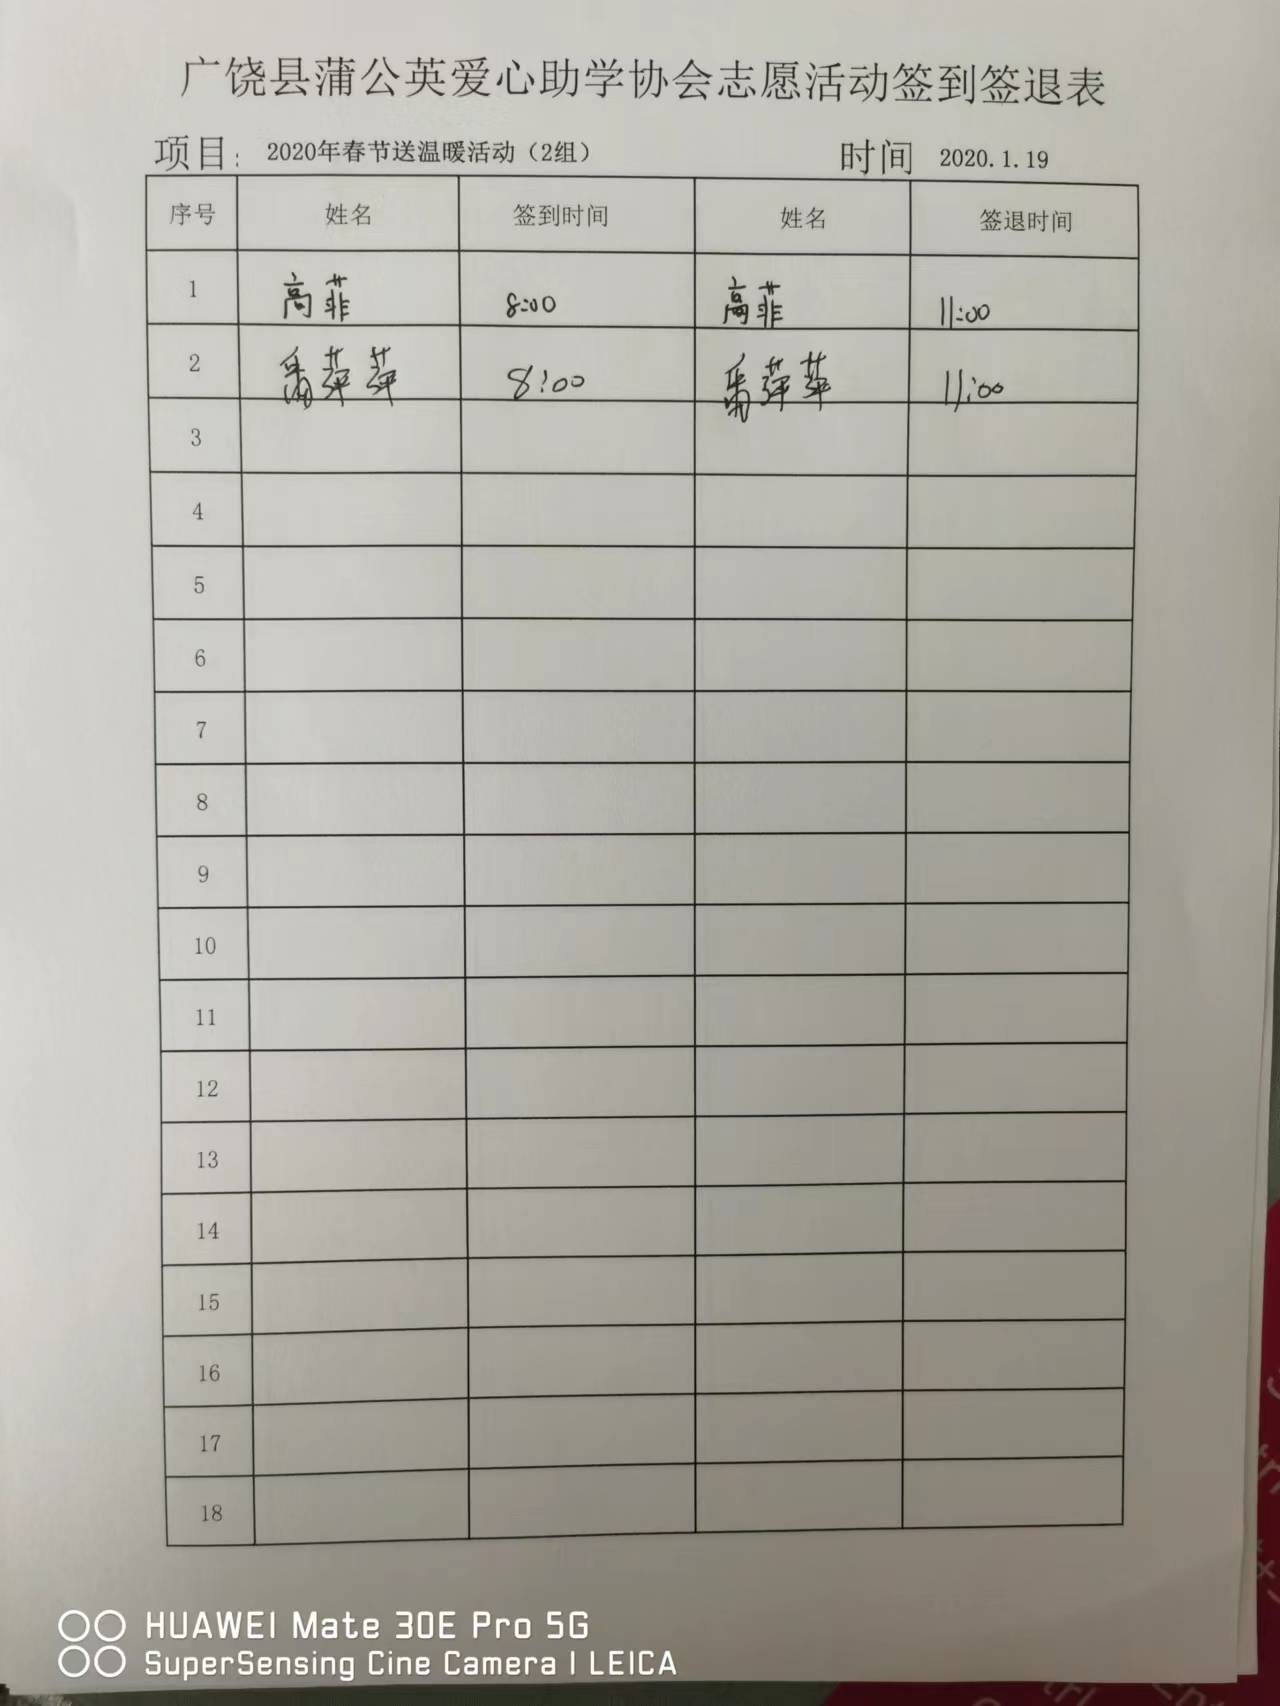 广饶县蒲公英爱心助学协会志愿活动签到签退表
项目： 2020年春节送温暖活动（2组） 时间 2020.1.19
序号 姓名 签到时间 姓名 签退时间
1 高菲 8:00 高菲 11:00
2 萍萍 8:00 萍萍 11:00
3
4
5
6
7
8
9
10
11
12
13
14
15
16
17
18
HUAWEI Mate 30E Pro 5G
SuperSensing Cine Camera | LEICA